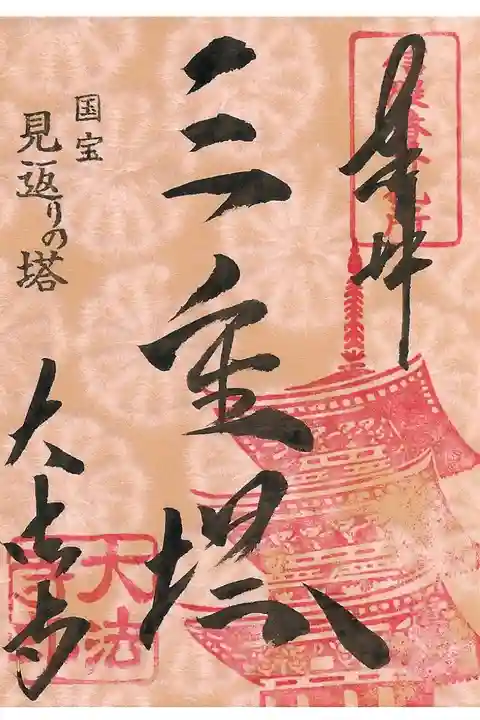 奉拝
三重塔
国宝
見返りの塔
大法寺
大法
寺印